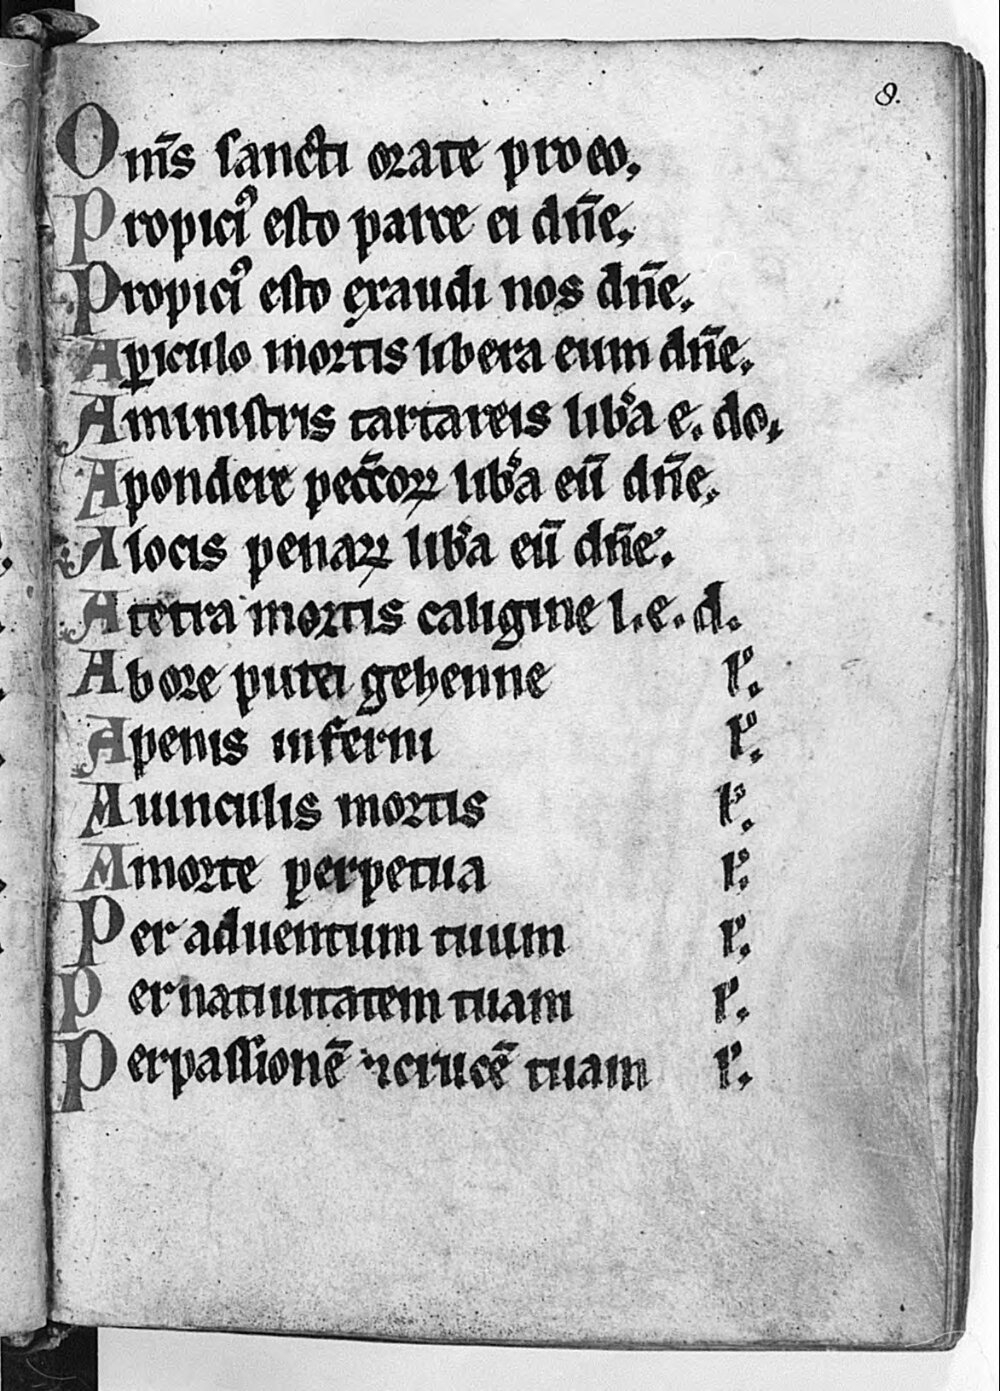 8.
Om̅s sancti orate pro eo.
Propiciꝰ esto parce ei dn̅e.
Propiciꝰ esto exaudi nos dn̅e.
A ꝑiculo mortis libera eum dn̅e.
A ministris tartareis lib̾a e. do.
A pondere pecc̅oꝝ lib̾a eu̅ dn̅e.
A locis penaꝝ lib̾a eu̅ dn̅e.
A tetra mortis caligine l. e. d.
Ab ore putei gehenne l̾.
A penis inferni l̾.
A uinculis mortis l̾.
A morte perpetua l̾.
Per aduentum tuum l̾.
Per natiuitatem tuam l̾.
Per passione̅ ⁊ cruce̅ tuam l̾.